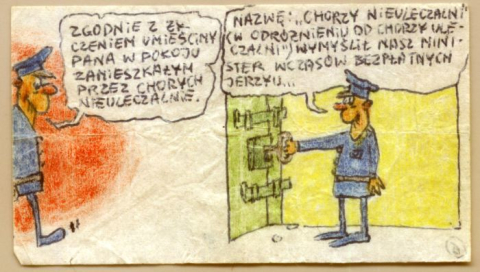 ZGODNIE Z ŻY-
CZENIEM UMIEŚCIMY
PANA W POKOJU
ZAMIESZKAŁYM
PRZEZ CHORYCH
NIEULECZALNIE.
NAZWĘ: „CHORZY NIEULECZALNI
(W ODRÓŻNIENIU OD CHORZY ULE-
CZALNI") WYMYŚLIŁ NASZ MINI-
STER WCZASÓW BEZPŁATNYCH
JERZYU...